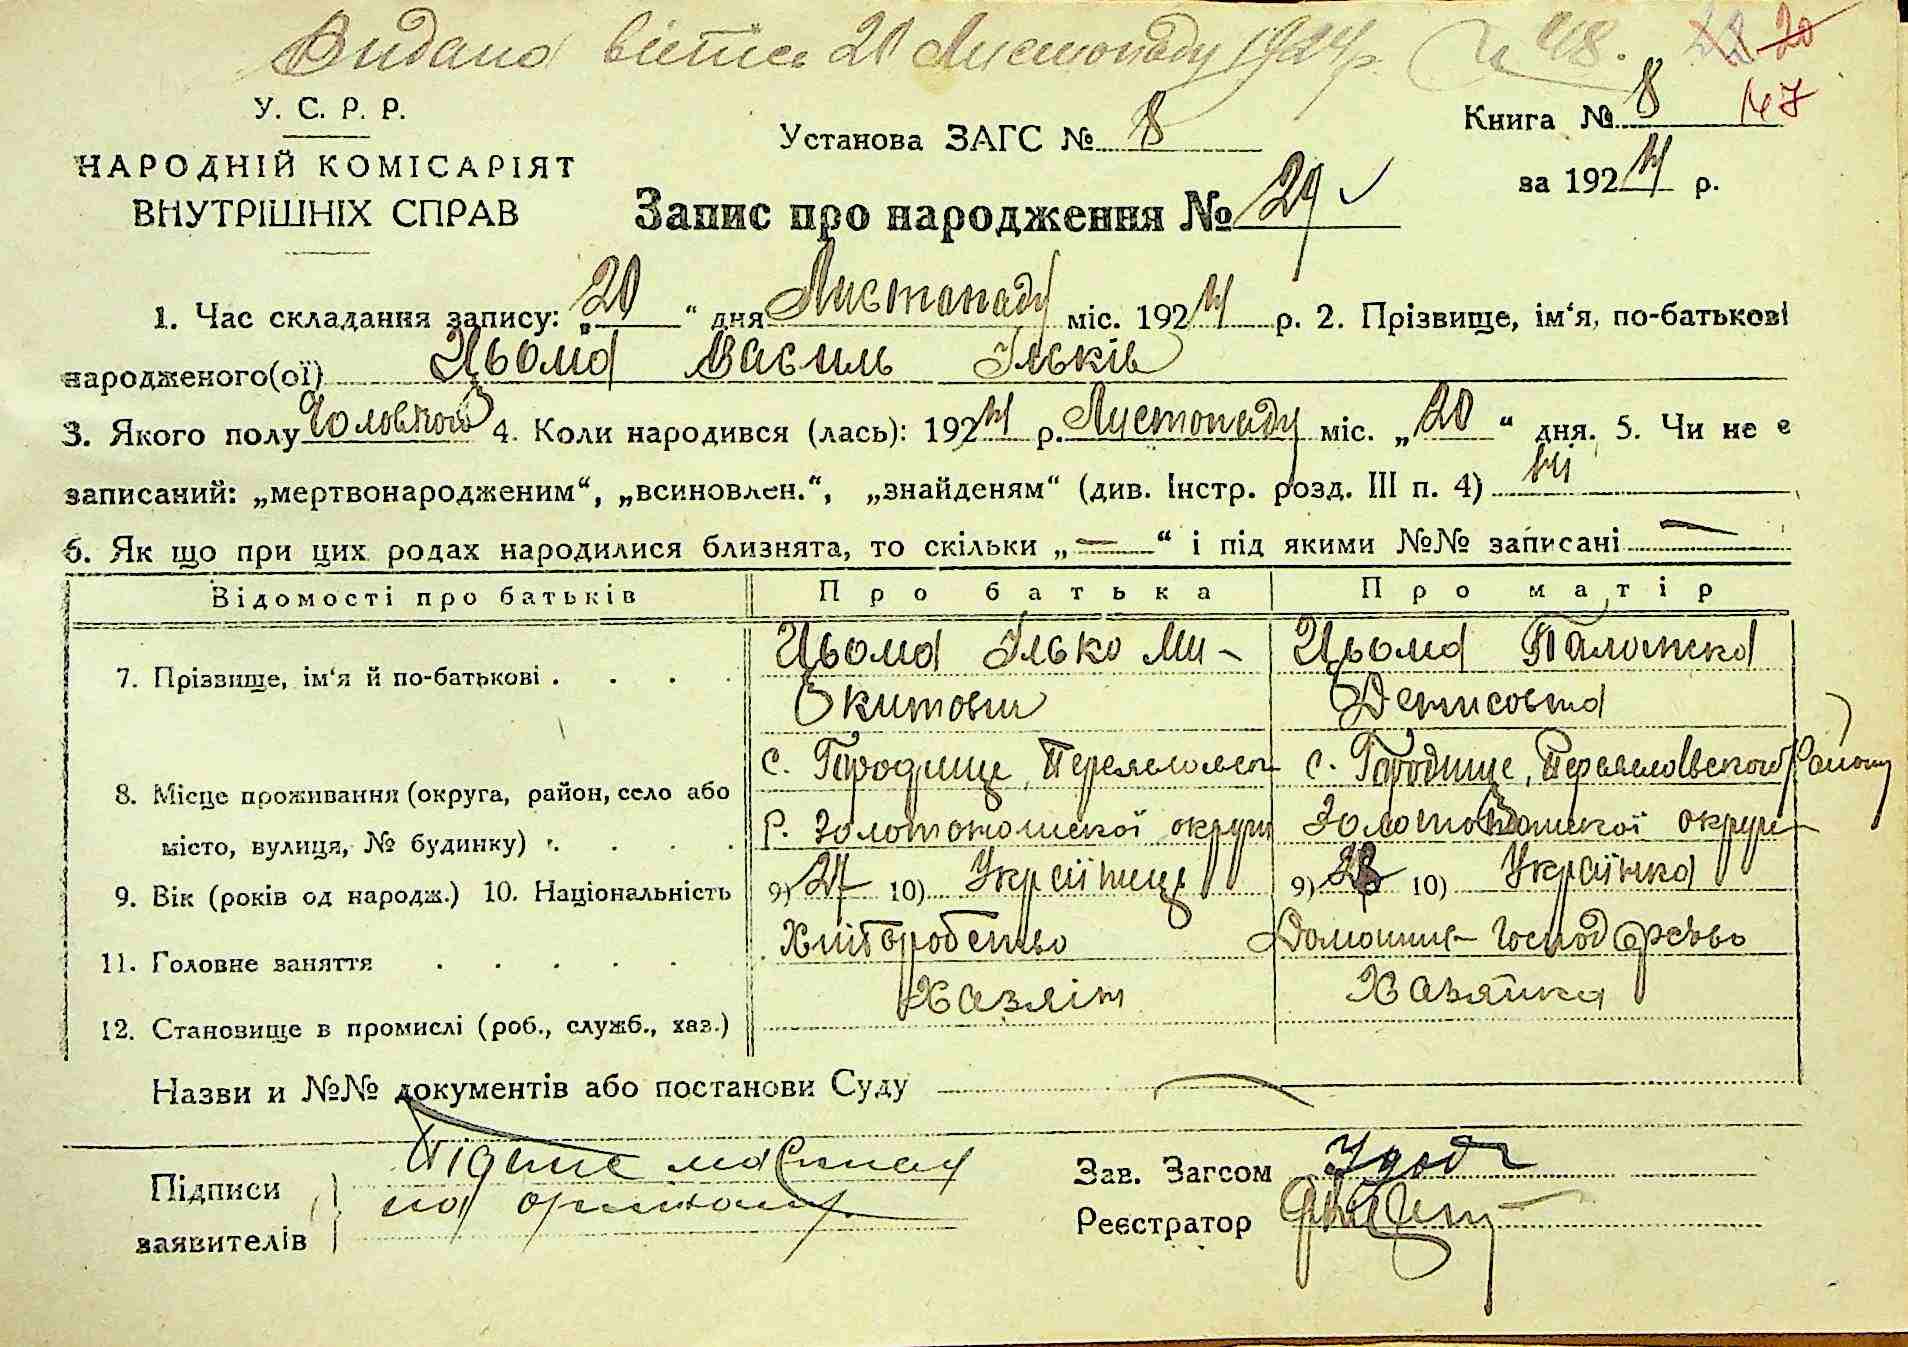 Видано витяг 20 Листопаду 1924 р. № 48. 20
У. С. Р. Р.
Книга № 8 147
Установа ЗАГС № 8
НАРОДНІЙ КОМІСАРІЯТ
за 1924 р.
ВНУТРІШНІХ СПРАВ
Запис про народження № 29
1. Час складання запису: „20“ дня Листопаду міс. 1924 р. 2. Прізвище, ім‘я, по-батькові
народженого(ої) Цьома Василь Ільків
3. Якого полу Чоловічого 4. Коли народився (лась): 1924 р. Листопаду міс. „20“ дня. 5. Чи не є
записаний: „мертвонародженим“, „всиновлен.“, „знайденям“ (див. Інстр. розд. III п. 4) ні
6. Як що при цих родах народилися близнята, то скільки „—“ і під якими №№ записані —
Відомості про батьків Про батька Про матір
7. Прізвище, ім‘я й по-батькові . . . . Цьома Ілько Ми- Цьома Палажка
китович Денисовна
с. Городище, Переяславск с. Городище, Переяславского Району
8. Місце проживання (округа, район, село або
р. Золотоношскої округи Золотоношскої округи
місто, вулиця, № будинку) . . . .
9. Вік (років од народж.) 10. Національність 9) 27 10) Українець 9) 10) Українка
Хліборобство Домашнє господарсьво
11. Головне заняття . . . . . .
Хазяїн Хазяйка
12. Становище в промислі (роб., служб., хаз.)
Назви и №№ документів або постанови Суду —
Підписи
заявителів
Зав. Загсом
Реєстратор